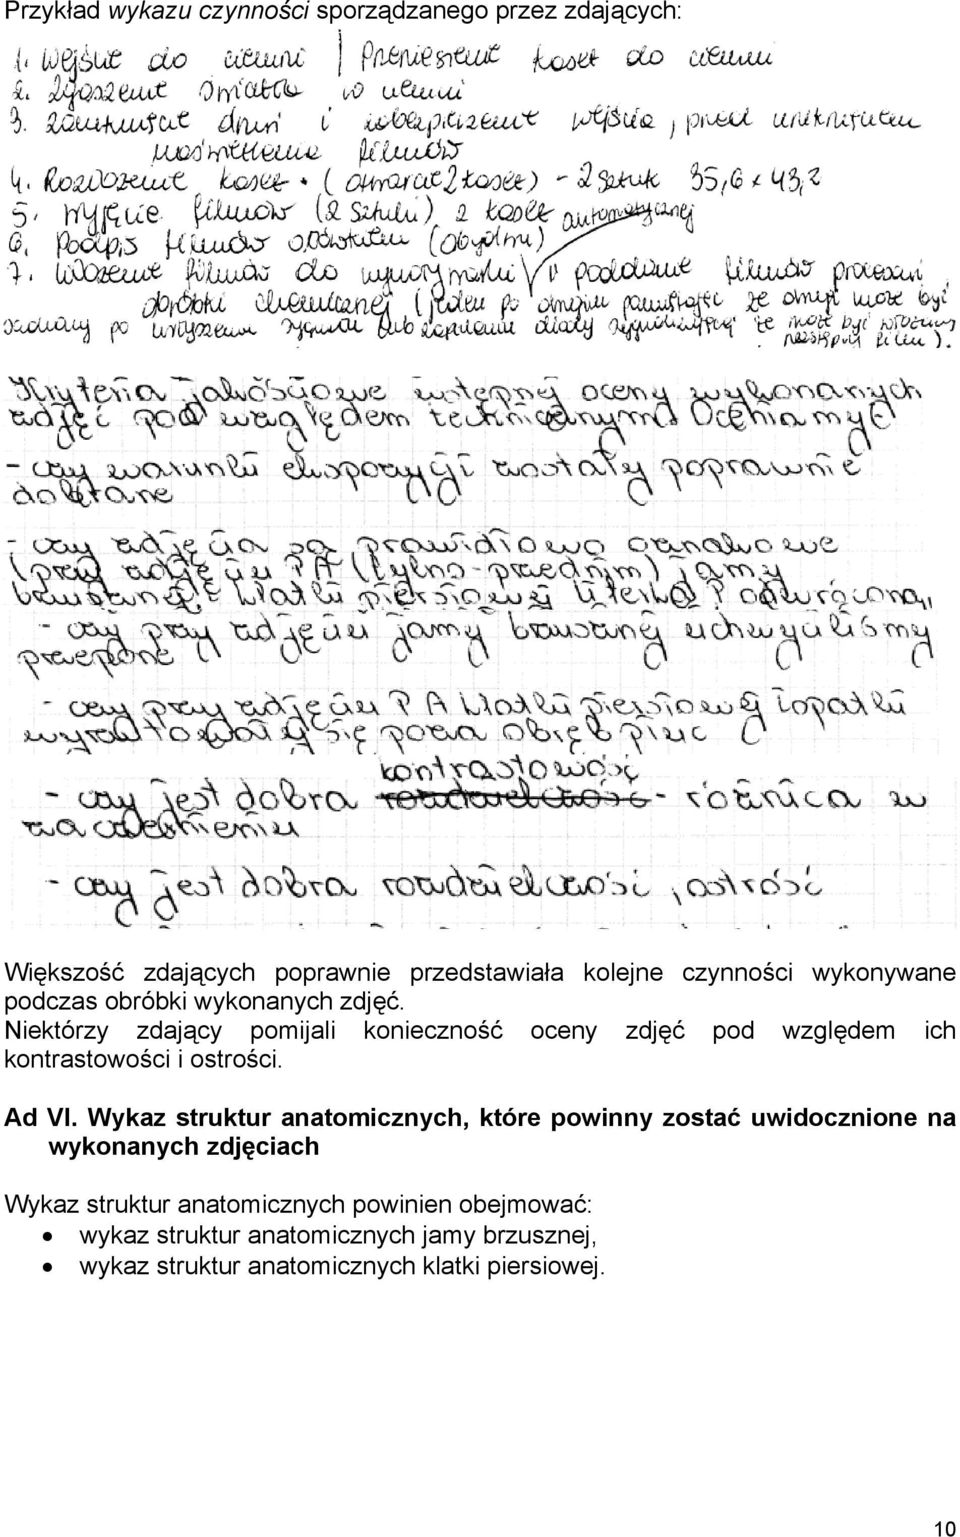 Przykład wykazu czynności sporządzanego przez zdających:
1. Wejście do ciemni / Przeniesienie kaset do ciemni
2. Zgaszenie światła w ciemni
3. Zamknięcie drzwi i zabezpieczenie wejścia, przed uniknięciem
naświetlenia filmów
4. Rozłożenie kaset. (otwarcie 2 kaset) - 2 sztuk 35,6 x 43,2
5. Wyjęcie filmów (2 sztuki) z kaset automatycznej
6. Podpis filmów (obydwu)
7. Włożenie filmów do wywoływarki / i poddanie filmów procesowi
obróbki chemicznej (jeden po drugim pamiętając że drugi może być
podany po usłyszeniu sygnału lub zapaleniu diody sygnalizującej że może być włożony
następny film).
Kryteria jakościowe wstępnej oceny wykonanych
zdjęć pod względem technicznym. Oceniamy:
- czy warunki ekspozycji zostały poprawnie
dobrane
- czy zdjęcia są prawidłowo oznakowane
(przy zdjęciu PA (tylno-przednim) jamy
brzusznej i klatki piersiowej literka P odwrócona,
- czy przy zdjęciu jamy brzusznej uchwyciliśmy
przeponę
- czy przy zdjęciu PA klatki piersiowej łopatki
się poza obręb płuc
kontrastowość
- czy jest dobra rozdzielczość - różnica w
zaczernieniu
- czy jest dobra rozdzielczość, ostrość
Większość zdających poprawnie przedstawiała kolejne czynności wykonywane
podczas obróbki wykonanych zdjęć.
Niektórzy zdający pomijali konieczność oceny zdjęć pod względem ich
kontrastowości i ostrości.
Ad VI. Wykaz struktur anatomicznych, które powinny zostać uwidocznione na
wykonanych zdjęciach
Wykaz struktur anatomicznych powinien obejmować:
• wykaz struktur anatomicznych jamy brzusznej,
• wykaz struktur anatomicznych klatki piersiowej.
10